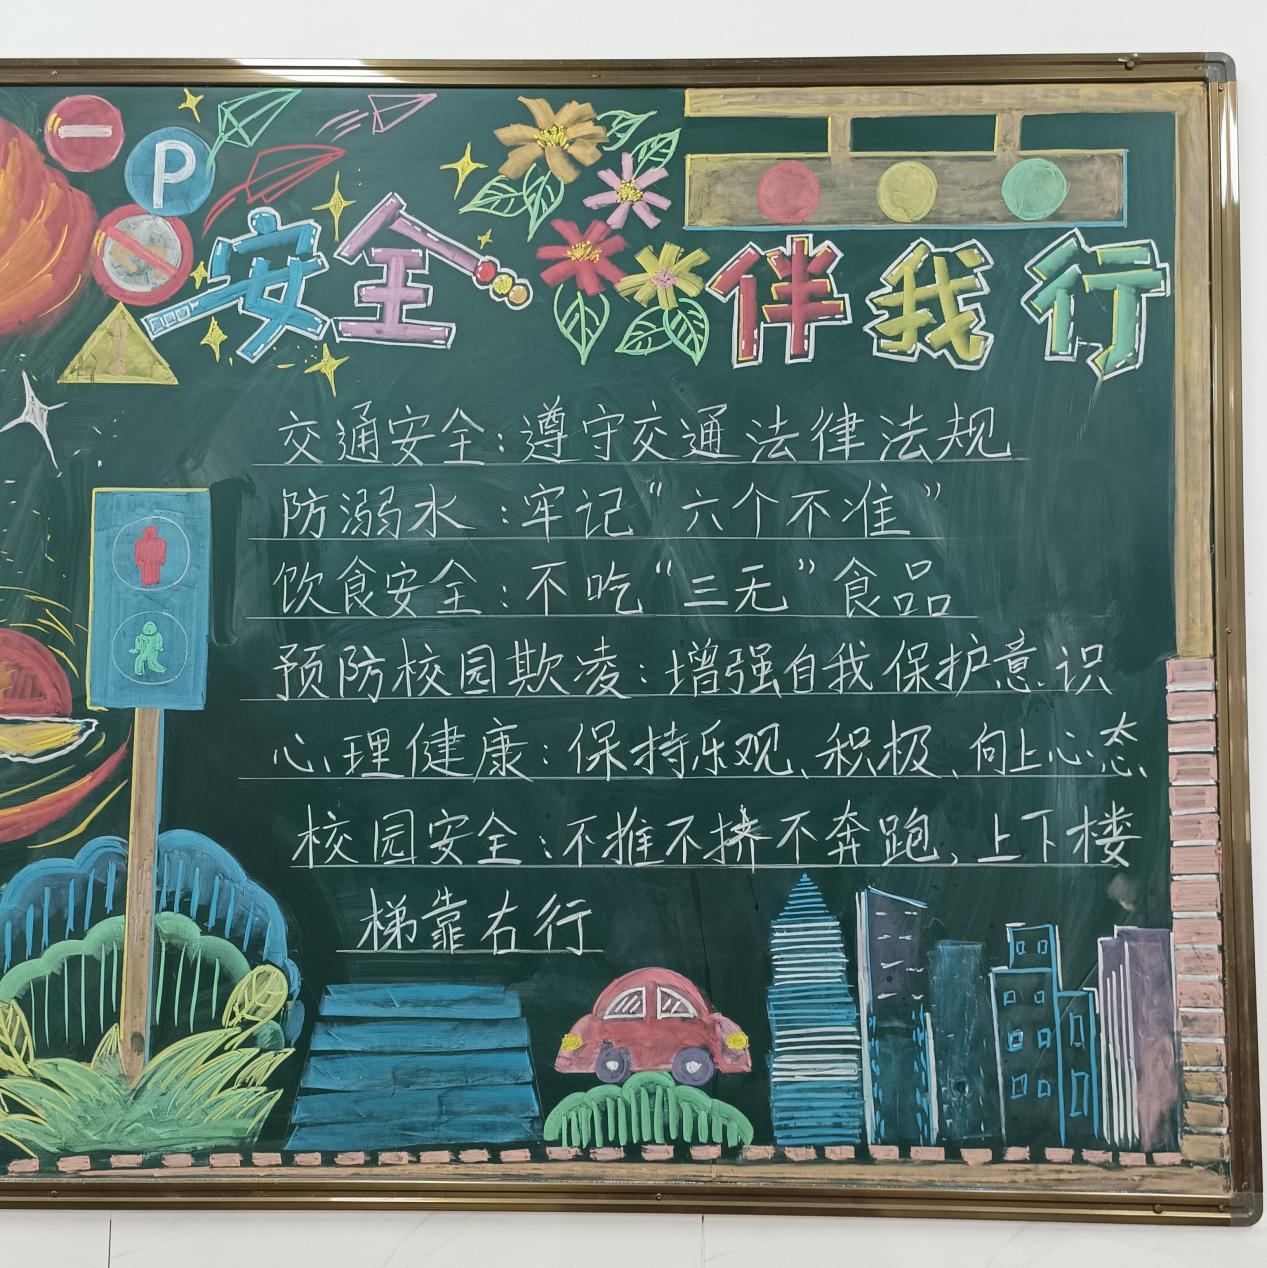 P
安全伴我行
交通安全:遵守交通法律法规
防溺水:牢记“六个不准”
饮食安全:不吃“三无”食品
预防校园欺凌:增强自我保护意识
心理健康:保持乐观、积极、向上心态
校园安全:不推不挤不奔跑,上下楼
梯靠右行